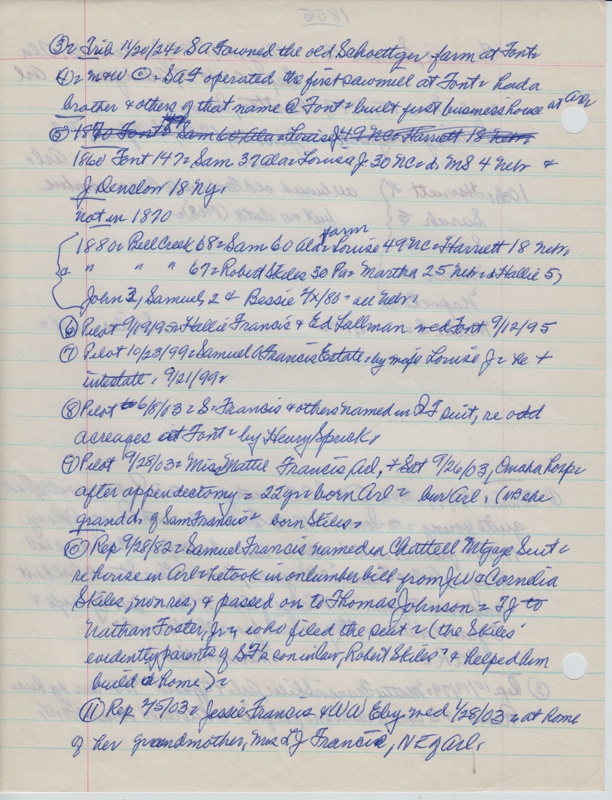 1855
③ = Trib 11/20/24 = SAF owned the old Schoettger farm at Font =
④ = M&W ⓒ = SAF operated the first sawmill at Font = had a
brother & others of that name @ Font = built first business house at Arl
⑤ 1870 Font 67 Sam 60 Ala = Louise J 49 NC = Harriett 18 Nebr
1860 Font 147 = Sam 37 Ala = Louisa J. 30 NC = d. MS 4 Nebr &
J Denslow 18 NY =
not in 1870
1880 = Bell Creek 68 = Sam 60 Ala = farm Louise 49 NC = Harriett 18 Nebr =
" " " 67 = Robert Skiles 30 Pa = Martha 25 Nebr = d Hallie 5,
John 3, Samuel, 2 & Bessie 4/x/80 = all Nebr.
⑥ Pilot 9/19/95 = Hallie Francis & Ed Lallman med Font 9/12/95
⑦ Pilot 10/23/99 = Samuel A Francis Estate = by Louise J = re +
intestate, 9/21/99 =
⑧ Pilot 6/8/03 = S. Francis & others named in QT suit, re odd
acreages at Font = by Henry Spuck,
⑨ Pilot 9/28/03 = Miss Mattie Francis died, + Sat 9/26/03, Omaha hosp =
after appendectomy = 22 yr = born Arl = bur Arl, (NB she
grand d. of Sam Francis = born Skiles =
⑩ Rep 9/28/82 = Samuel Francis named in Chattell Mtgage Suit =
re house in Arl = he took in on lumber bill from JW & Cornelia
Skiles, nonres, & passed on to Thomas Johnson = TJ to
Nathan Foster, Jr, who filed the suit = (the Skiles'
evidently parents of SF's son in law, Robert Skiles = & helped him
build a home) =
⑪ Rep 2/5/03 = Jessie Francis & WW Eby med 1/28/03 = at home
of her grandmother, Mrs LJ Francis, NE of Arl.